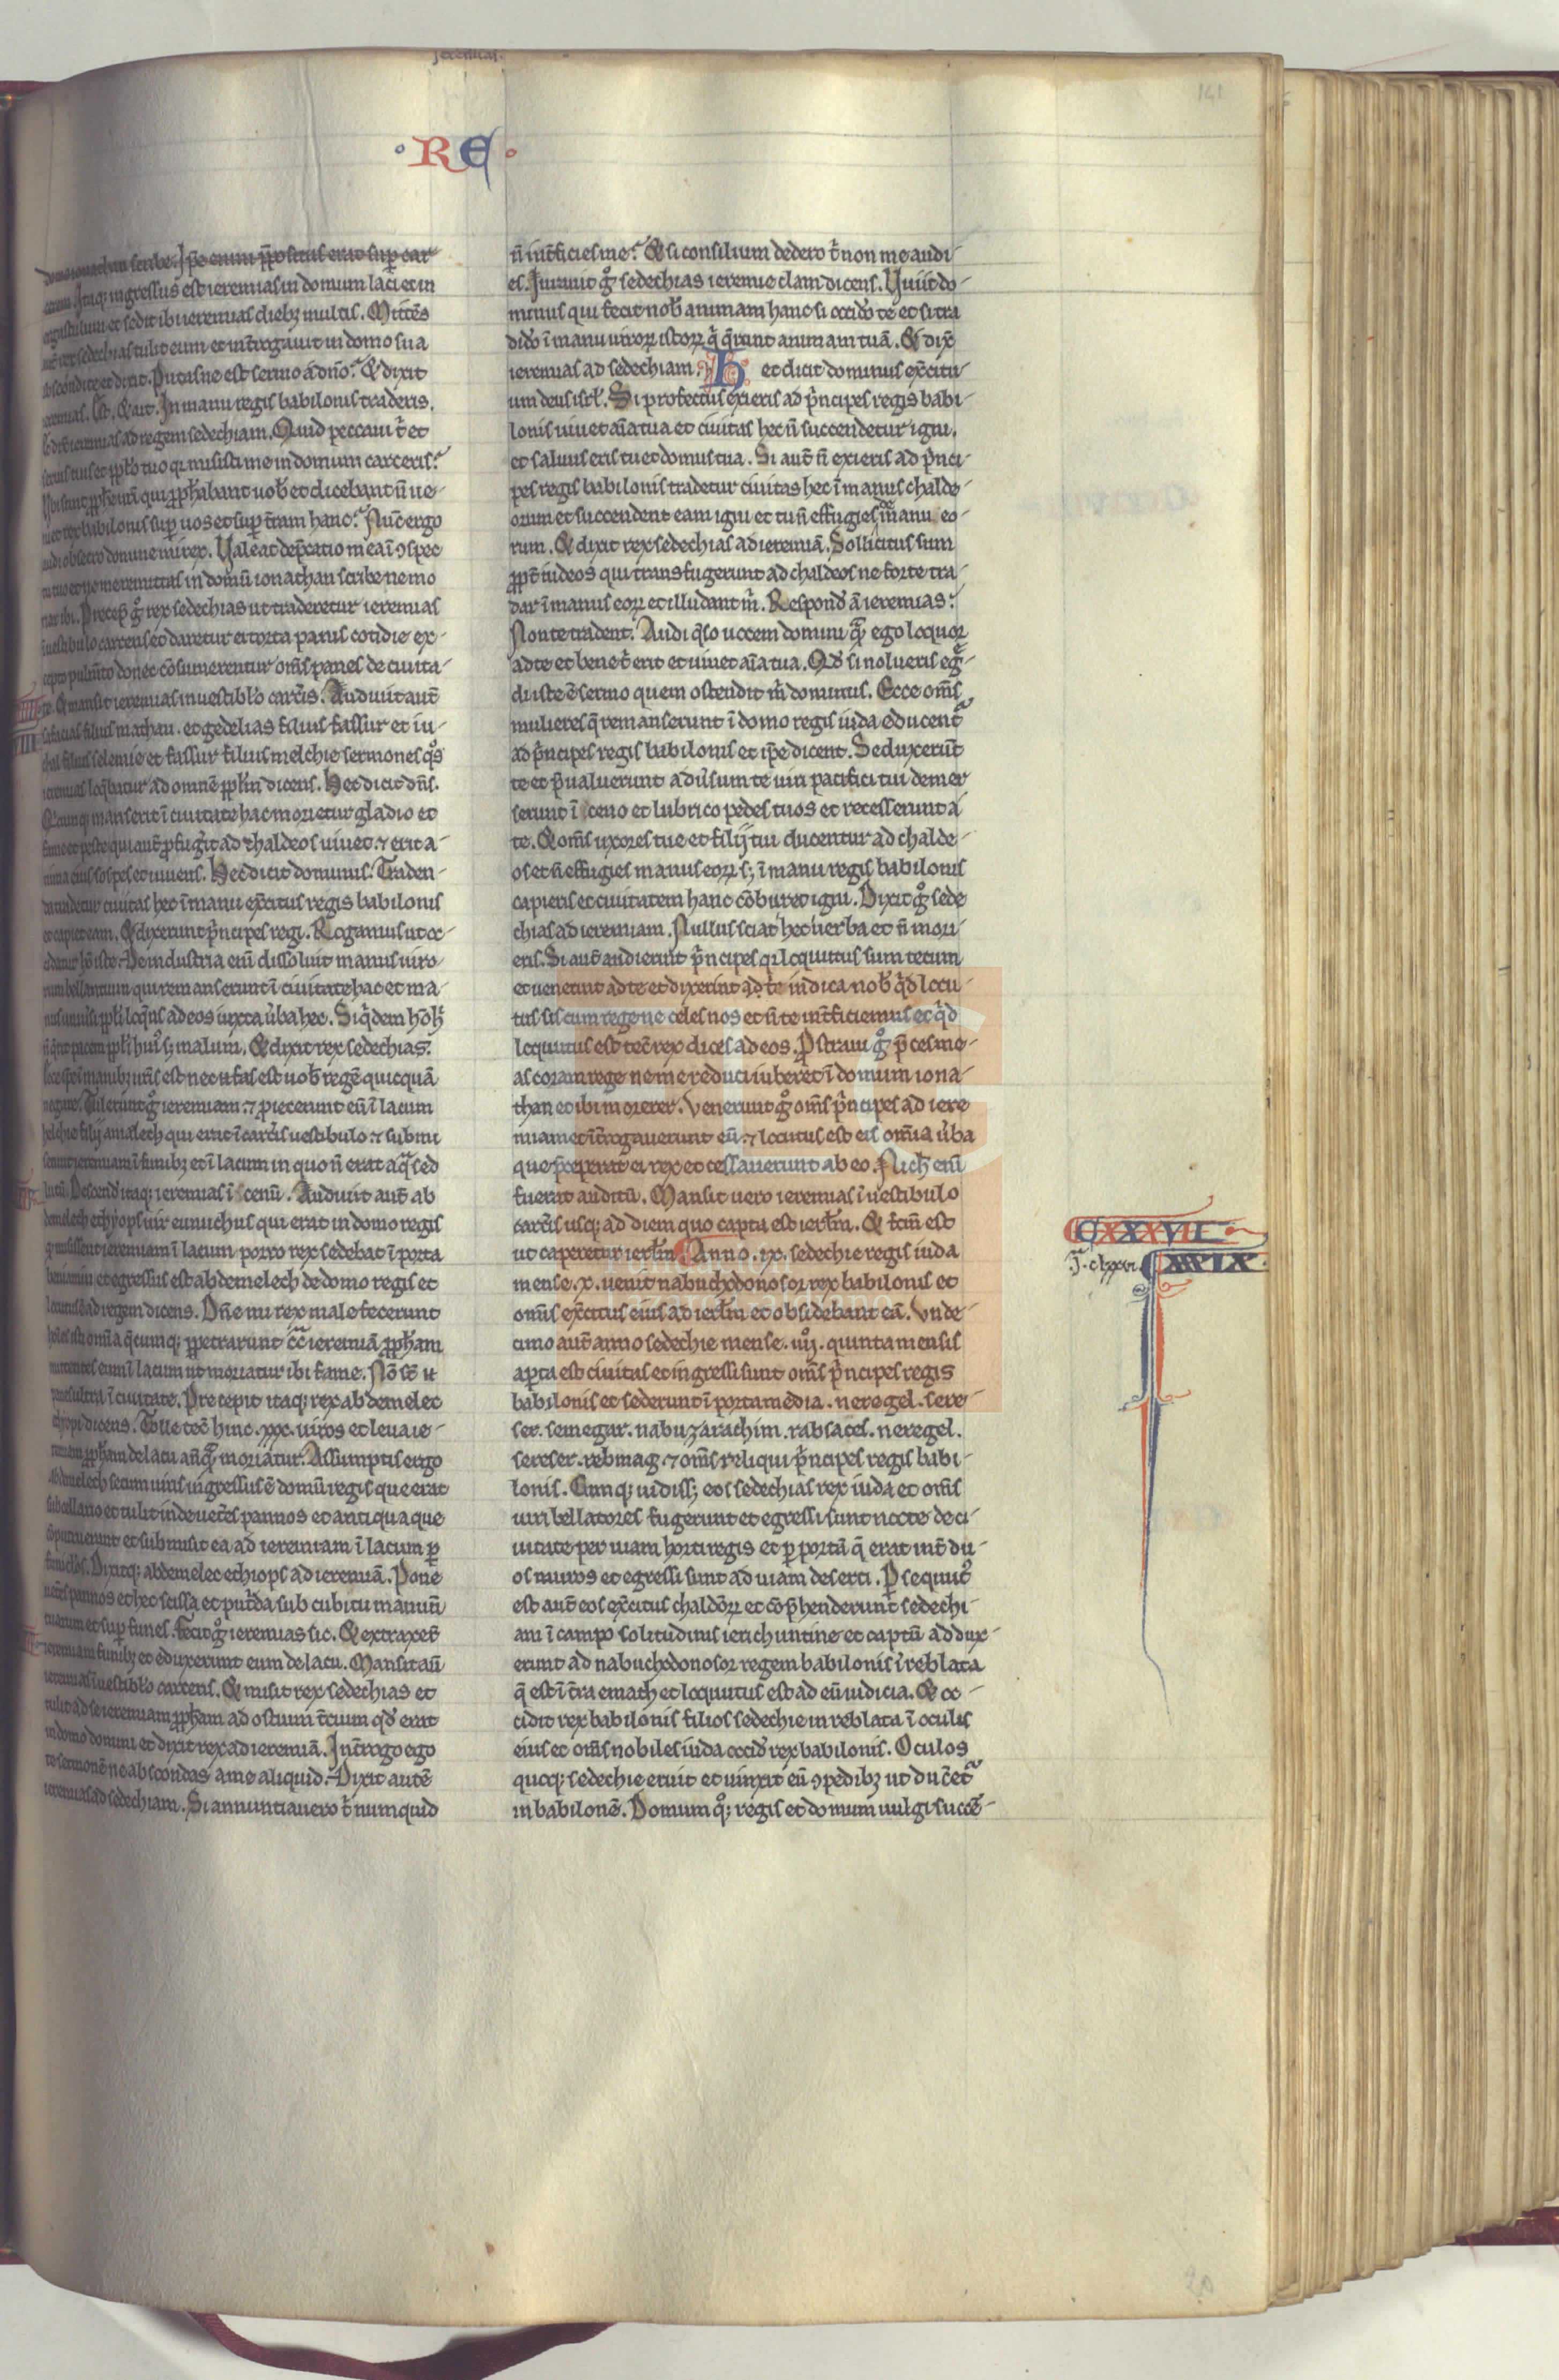 Jeremias.
141
· R E ·
domo ionathan scribe. Ip̄e enim p̄positus erat sup̲ car-
cerem. Itaq; ingressus est ieremias in domum laci et in
ergastulum et sedit ibi ieremias diebꝫ multis. Mittēs
aut̄ rex sedechias tulit eum et int̄rogauit in domo sua
abscondite et dixit. Putasne est sermo a dn̄o? Et dixit
ieremias. Est. Et ait. In manu regis babilonis traderis.
Et dix̄ ieremias ad regem sedechiam. Quid peccaui t̄ et
seruis tuis et pp̄lo tuo qꝛ misisti me in domum carceris?
Vbi sunt pph̄e ur̄i qui pph̄abant uob̄ et dicebant n̄ ue-
niet rex babilonis sup̲ uos et sup̲ t̄ram hanc? Nūc ergo
audi obsecro domine mi rex. Valeat dep̄catio mea ī ꝯspec
tu tuo et ne me remittas in domū ionathan scribe ne mo
riar ibi. Precep̄ g̊ rex sedechias ut traderetur ieremias
ī uestibulo carceris et daretur ei torta panis cotidie ex-
cepto pulm̄to donec cōsumerentur om̄s panes de ciuita-
te. Et mansit ieremias in uestiblo carc̄is. Audiuit aut̄
safacias filius mathan. et gedelias filius fassur et iu-
chal filius selemie et fassur filius melchie sermones qͦs
ieremias loq̄batur ad omnē pp̄lm̄ dicens. Hec dicit dn̄s.
Quicunq; manserit ī ciuitate hac morietur gladio et
fame et peste qui aut̄ p̲fug̾it ad chaldeos uiuet. ⁊ erit a-
nima eius sospes et uiuens. Hec dicit dominus. Traden-
da tradetur ciuitas hec ī manu ex̄citus regis babilonis
et capiet eam. Et dixerunt p̄ncipes regi. Rogamus ut oc-
cidatur hō iste. De industria em̄ dissoluit manus uiro-
rum bellantium qui remanserunt ī ciuitate hac et ma-
nus uniuersi pp̄li loq̄ns ad eos iuxta ūba hec. Siq̄dem hōh̾
n̄ q̄rit pacem pp̄lo huiͨ s; malum. Et dixit rex sedechias.
Ecce ip̄e ī manibꝫ ur̄is est nec n̄ fas est uob̄ regē quicquā
negare. Tulerunt g̊ ieremiam. ⁊ p̲iecerunt eū ī lacum
helchie filij amalech qui erat ī carc̄is uestibulo ⁊ submi
serunt ieremiam ī funibꝫ et ī lacum in quo n̄ erat aq̄ sed
lutū. Descend̾ itaq; ieremias ī cenū. Audiuit aut̄ ab
demelech ethyops uir eunuchus qui erat in domo regis
q̄ misissent ieremiam ī lacum porro rex sedebat ī porta
beniamin et egressus est abdemelech de domo regis et
locutus ē ad regem dicens. Dn̄e mi rex male fecerunt
uiri isti omīa q̄cumq; p̲petrarunt cͨc̄ ieremiā pph̄am
mittentes eum ī lacum ut moriatur ibi fame. Nō st̄ .n.
panes ultra ī ciuitate. Precepit itaq; rex abdemelec
ethyopi dicens. Tolle tec̄ hinc .xxx. uiros et leua ie-
remiam pph̄am de lacu an̄q̄ moriatur. Assumptis ergo
abdemelech secum uiris ingressus ē domū regis que erat
sub cellario et tulit inde ueteres pannos et antiqua que
cōputruerunt et submisit ea ad ieremiam ī lacum p̲
funiclōs. Dixitq; abdemelec ethiops ad ieremiā. Pone
ueteres pannos et hec scissa et put̾da sub cubitu manuū
tuarum et sup̲ funes. Fecit g̊ ieremias sic. Et extraxer̄
ieremiam funibꝫ et eduxerunt eum de lacu. Mansit aū
ieremias ī uestiblo carceris. Et misit rex sedechias et
tulit ad se ieremiam pph̄am ad ostium t̄cium qd̾ erat
in domo domini et dixit rex ad ieremiā. Int̄rogo ego
te sermonē ne abscondas a me aliquid. Dixit autē
ieremias ad sedechiam. Si annuntiauero t̄ numquid
n̄ int̄ficies me? Et si consilium dedero t̄ non me audi-
es. Iurauit g̊ sedechias ieremie clam dicens. Viuit do-
minus qui fecit nob̄ animam hanc si occid̾o te et si tra
did̾o ī manu uiroꝝ istoꝝ q̄ q̄runt animam tuā. Et dix̄
ieremias ad sedechiam. Hec dicit dominus ex̄citu-
um deus isr̄l. Si profectus exieris ad p̄ncipes regis babi-
lonis uiuet aīa tua et ciuitas hec n̄ succendetur igni.
et saluus eris tu et domus tua. Si aut̄ n̄ exieris ad p̄nci-
pes regis babilonis tradetur ciuitas hec ī manus chalde-
orum et succendent eam igni et tu n̄ effugies de manu eo-
rum. Et dixit rex sedechias ad ieremiā. Sollicitus sum
pp̄t̄ iudeos qui transfugerunt ad chaldeos ne forte tra-
dar ī manus eoꝝ et illudant m̄. Respond̾ aū ieremias.
Non te tradent. Audi q̄so uocem domini q̄ ego loquor
ad te et bene t̄ erit et uiuet aīa tua. Qd̾ si nolueris eg̾-
di iste ē sermo quem ostendit m̄ dominus. Ecce om̄s
mulieres q̄ remanserunt ī domo regis iuda educent̾
ad p̄ncipes regis babilonis et ip̄e dicent. Seduxerūt
te et p̄ualuerunt adūsum te uiri pacifici tui demer
serunt ī ceno et lubrico pedes tuos et recesserunt a
te. Et om̄s uxores tue et filij tui ducentur ad chalde-
os et n̄ effugies manus eoꝝ s; ī manu regis babilonis
capieris et ciuitatem hanc cōburet igni. Dixit g̊ sede
chias ad ieremiam. Nullus sciat hec uerba et n̄ mori-
eris. Si aut̄ audierint p̄ncipes qꝛ loquutus sum tecum
et uenerint ad te et dixerint ad te indica nob̄ q̄d locu-
tus sis cum rege ne celes nos et n̄ te int̄ficiemus et q̄d
loquutus est tec̄ rex dices ad eos. P̲straui g̊ p̄ces me-
as coram rege ne me reduci iuberet ī domum iona-
than et ibi morerer. Venerunt g̊ om̄s p̄ncipes ad iere
miam et īt̄rogauerunt eū. ⁊ locutus est eis omīa ūba
que p̄ceperat ei rex et cessauerunt ab eo. Nich̄ em̄
fuerat auditū. Mansit uero ieremias ī uestibulo
carc̄is usq; ad diem quo capta est ierl̄m. Et fc̄m est
ut caperetur ierl̄m. Anno .ix. sedechie regis iuda
mense .x. uenit nabuchodonosor rex babilonis et
omīs ex̄citus eius ad ierl̄m et obsidebant eā. Vnde-
cimo aut̄ anno sedechie mense .iiij. quinta mensis
ap̲ta est ciuitas et ingressi sunt om̄s p̄ncipes regis
babilonis et sederunt ī porta media. neregel. sere-
ser. semegar. nabuzarachim. rabsaces. neregel.
sereser. rebmag. ⁊ om̄s reliqui p̄ncipes regis babi-
lonis. Cumq; uidiss; eos sedechias rex iuda et om̄s
uiri bellatores fugerunt et egressi sunt nocte de ci-
uitate per uiam horti regis et p̲ portā q̄ erat int̄ du-
os muros et egressi sunt ad uiam deserti. P̲sequut̾
est aut̄ eos ex̄citus chaldeoꝝ et cōp̄henderunt sedechi-
am ī campo solitudinis ierichuntine et captū addux-
erunt ad nabuchodonosor regem babilonis ī reblata
q̄ est ī t̄ra emath et loquutus est ad eū iudicia. Et oc-
cidit rex babilonis filios sedechie in reblata ī oculis
eius et om̄s nobiles iuda occid̾ rex babilonis. Oculos
quoq; sedechie eruit et uinxit eū ꝯpedibꝫ ut ducēt̾
in babilonē. Domum qͦ; regis et domum uulgi succē-
CXXXVII
J. clxxvi
XXXIX.
20